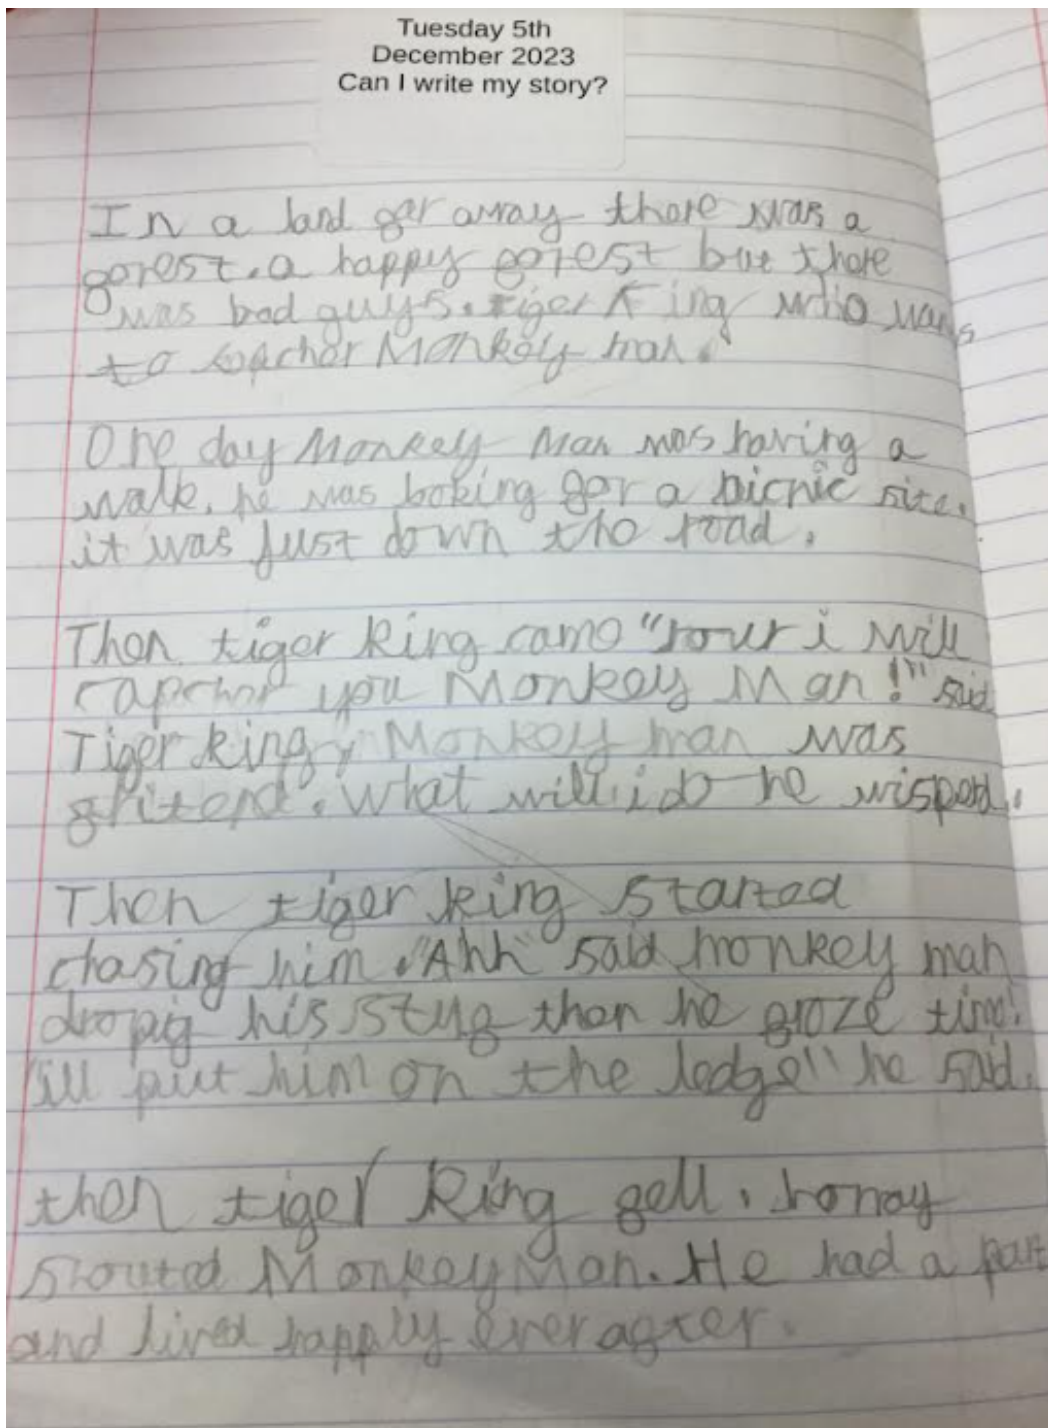 Tuesday 5th
December 2023
Can I write my story?
In a land far away there was a
forest. a happy forest but there
was bad guys. tiger King who wans
to capcher Monkey man.
One day Monkey Man was having a
walk. he was looking for a picnic site.
it was just down the road.
Then tiger king came "rour i will
capcher you Monkey Man!" said
Tiger king, Monkey man was
fritend. What will i do he wisperd.
Then tiger king started
chasing him. "Ahh" said monkey man
dropig his stuf then he froze time!
"ill put him on the ledge" he said.
then tiger King fell. horray
shouted Monkey Man. He had a part
and lived happly ever after.